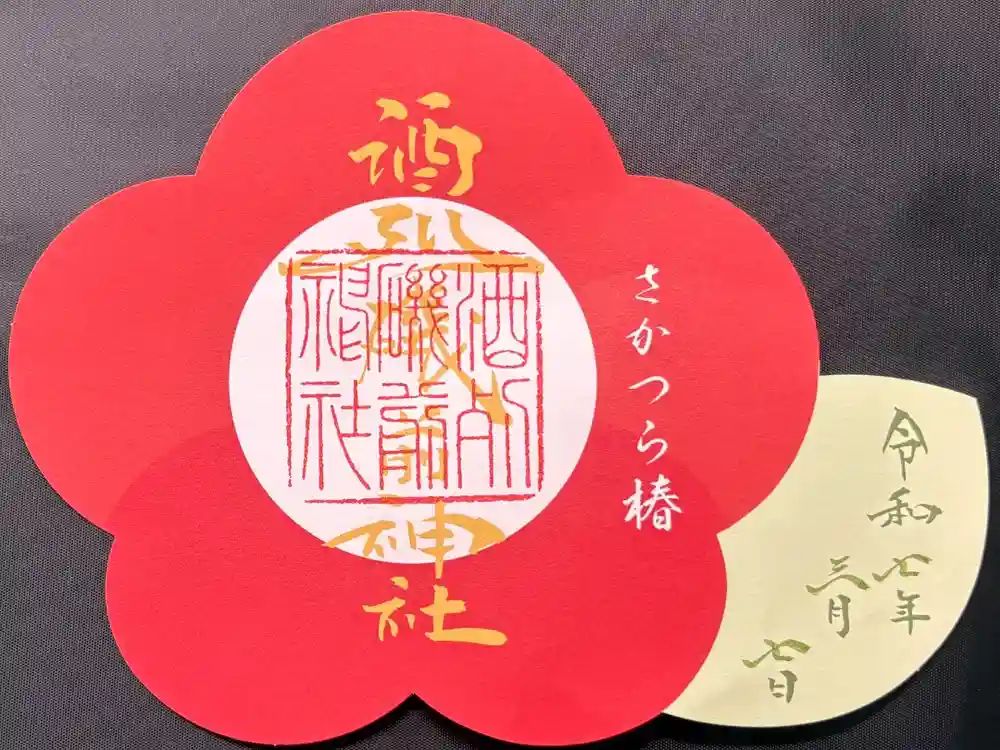 酒列磯前神社
酒列
磯前
神社
さかつら椿
令和七年
三月
七日